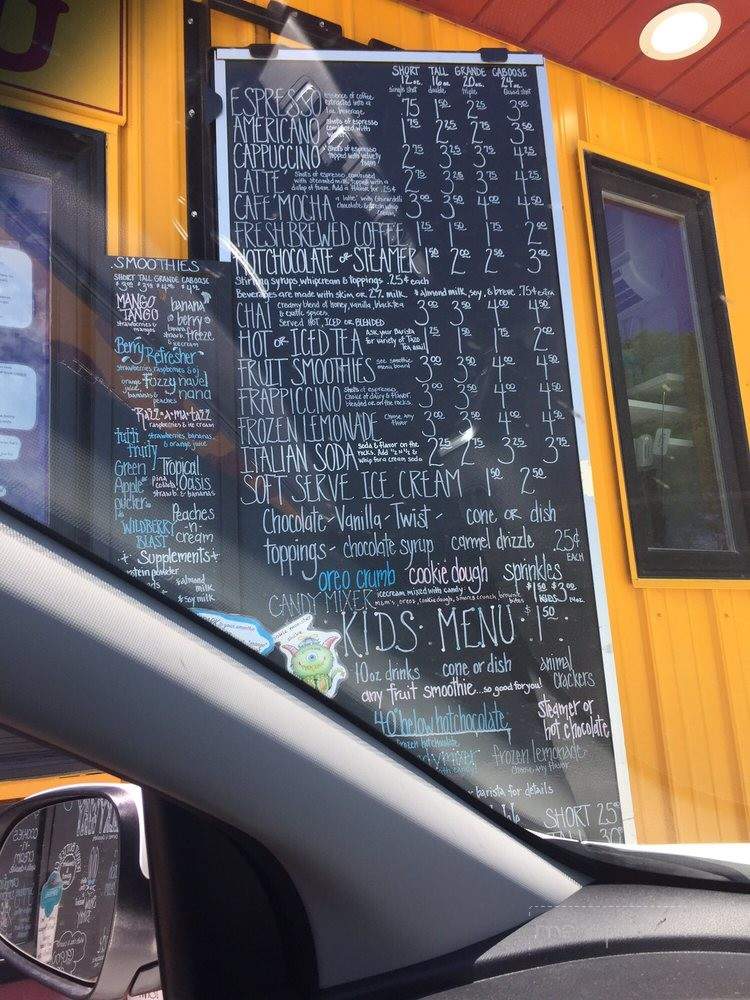 U
SHORT TALL GRANDE CABOOSE
12oz. 16oz 20oz. 24oz.
single shot double triple Quad shot
ESPRESSO essence of coffee extracted into a 1 oz beverage .75 1.50 2.25 3.00
AMERICANO shots of espresso combined with 1.75 2.25 2.75 3.50
CAPPUCCINO shots of espresso topped with velvety foam 2.75 3.25 3.75 4.25
LATTE shots of espresso combined with steamed milk, topped with a dollop of foam. Add a flavor for .25¢ 2.75 3.25 3.75 4.25
CAFE' MOCHA a "latte" with Ghirardelli chocolate & fresh whip cream 3.00 3.50 4.00 4.50
FRESH BREWED COFFEE 1.25 1.50 1.75 2.00
HOT CHOCOLATE or STEAMER 1.50 2.00 2.50 3.00
Stirling syrups, whipcream & toppings .25¢ each
Beverages are made with skim or 2% milk. * almond milk, soy, & breve .75¢ extra
CHAI creamy blend of honey, vanilla, black tea & exotic spices. Served HOT, ICED or BLENDED 3.00 3.50 4.00 4.50
HOT or ICED TEA ask your barista for variety of Tazo Tea avail 1.25 1.50 1.75 2.00
FRUIT SMOOTHIES see smoothie menu board 3.00 3.50 4.00 4.50
FRAPPICCINO shots of espresso choice of dairy & flavor. blended or on the rocks. 3.00 3.50 4.00 4.50
FROZEN LEMONADE Choose any flavor 3.00 3.50 4.00 4.50
ITALIAN SODA soda & flavor on the rocks. Add ½ n ½ & whip for a cream soda 2.25 2.75 3.25 3.75
SOFT SERVE ICE CREAM 1.50 2.50
Chocolate - Vanilla - Twist - cone or dish
toppings - chocolate syrup carmel drizzle .25¢ EACH
oreo crumb cookie dough sprinkles
CANDY MIXER icecream mixed with candy: m&m's, oreos, cookie dough, smores crunch, brownie bites
KIDS' MENU $1.50
10oz drinks cone or dish animal crackers
any fruit smoothie...so good for you!
steamer or hot chocolate
40° below hot chocolate
frozen hot chocolate
frozen lemonade
choose any flavor
barista for details
SHORT .25¢
.30¢
SMOOTHIES
SHORT TALL GRANDE CABOOSE
MANGO TANGO
strawberries & mangos
banana berry freeze
& icecream
Berry Refresher
strawberries, raspberries & oj
fuzzy navel nana
orange juice bananas & peaches
Razz-a-ma-tazz
raspberries & ice cream
tutti fruity
strawberries, bananas, & orange juice
Green Apple
Tropical Oasis
pina colada
strawb. & bananas
WILDBERRY BLAST
Peaches -n- Cream
+ Supplements +
protein powder
* almond milk
* soy milk